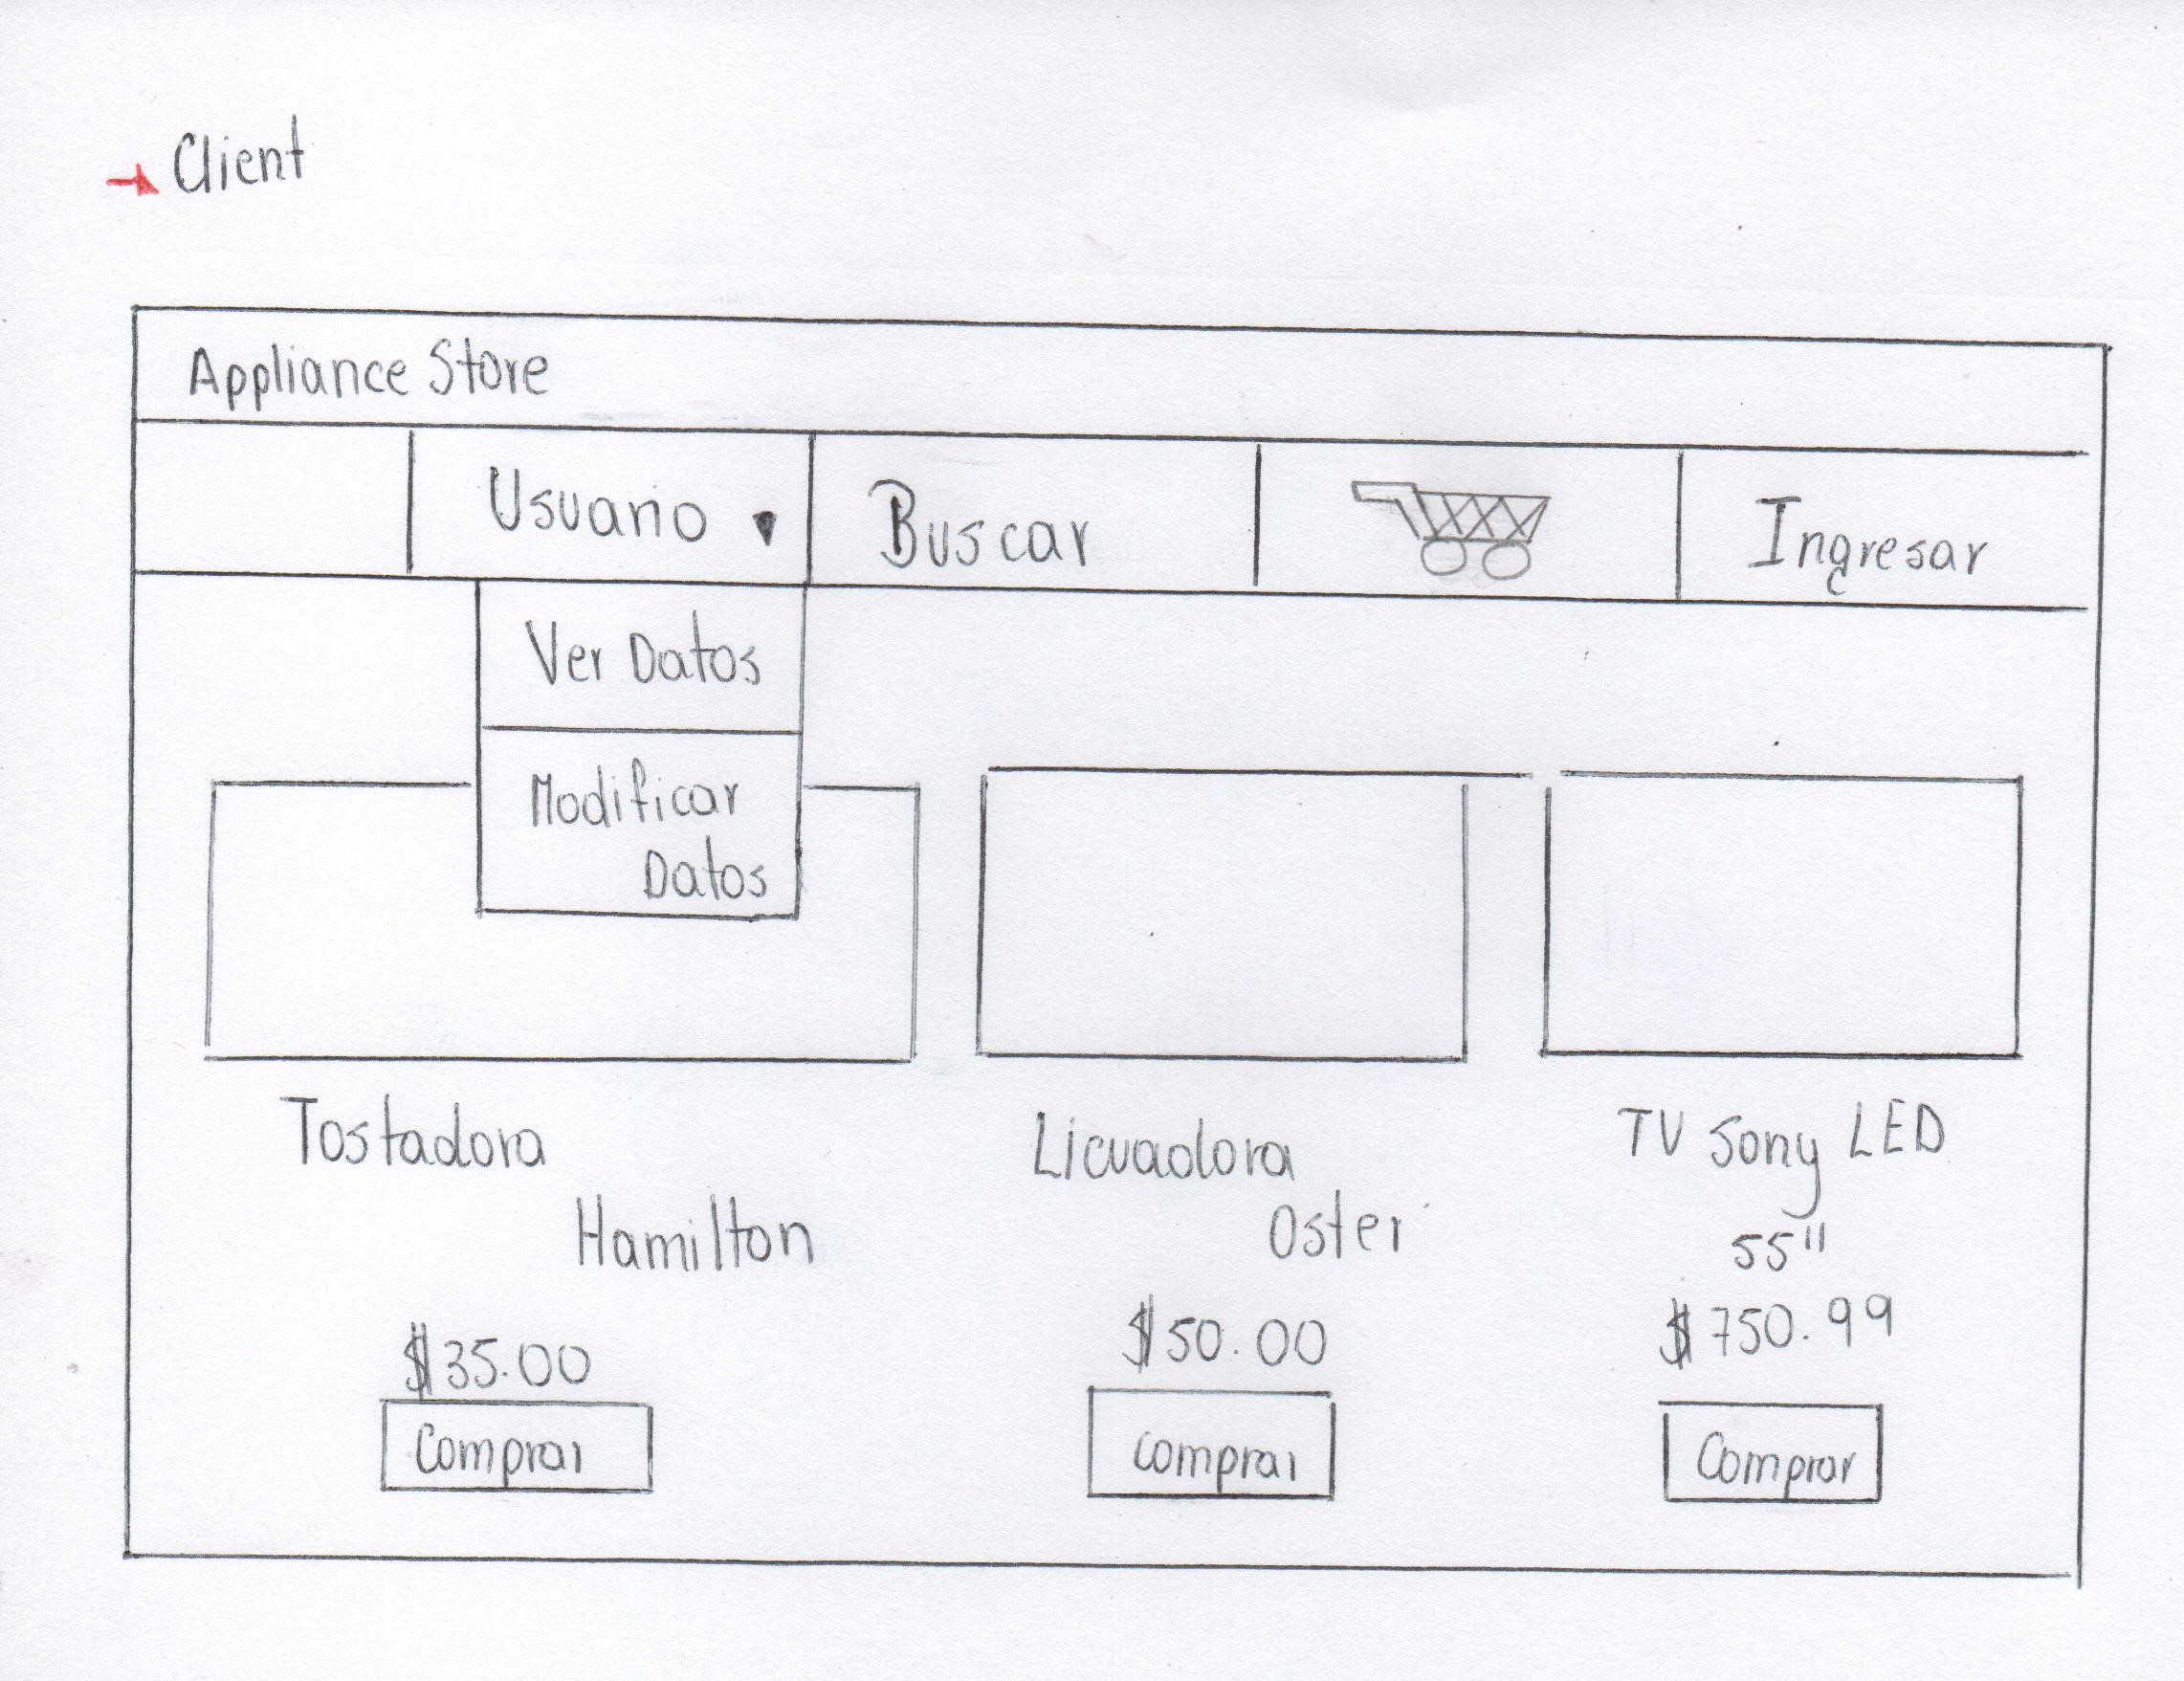 Client
Appliance Store
Usuario
Buscar
Ingresar
Ver Datos
Modificar
Datos
Tostadora
Hamilton
$35.00
Comprar
Licuadora
Oster
$50.00
Comprar
TV Sony LED
55"
$750.99
Comprar